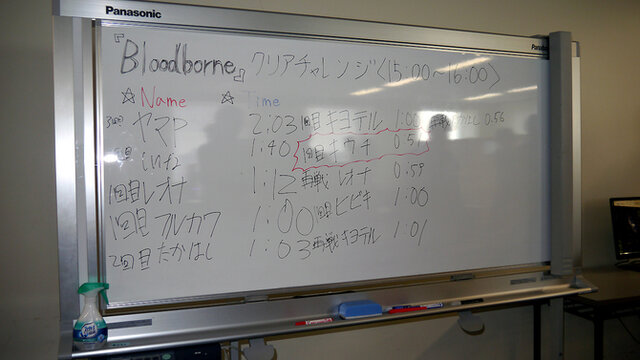 Panasonic
Panasonic
『Bloodborne』クリアチャレンジ〈15:00~16:00〉
☆Name ☆Time
ヤマP 2:03 1回目 キヨテル 1:00 再戦 たかはし 0.56
1:40 1回目 キウチ
1回目 レオナ 1:12 再戦 レオナ 0.59
1回目 フルカワ 1:00 1回目 ヒビキ 1:00
2回目 たかはし 1:03 再戦 キヨテル 1:01